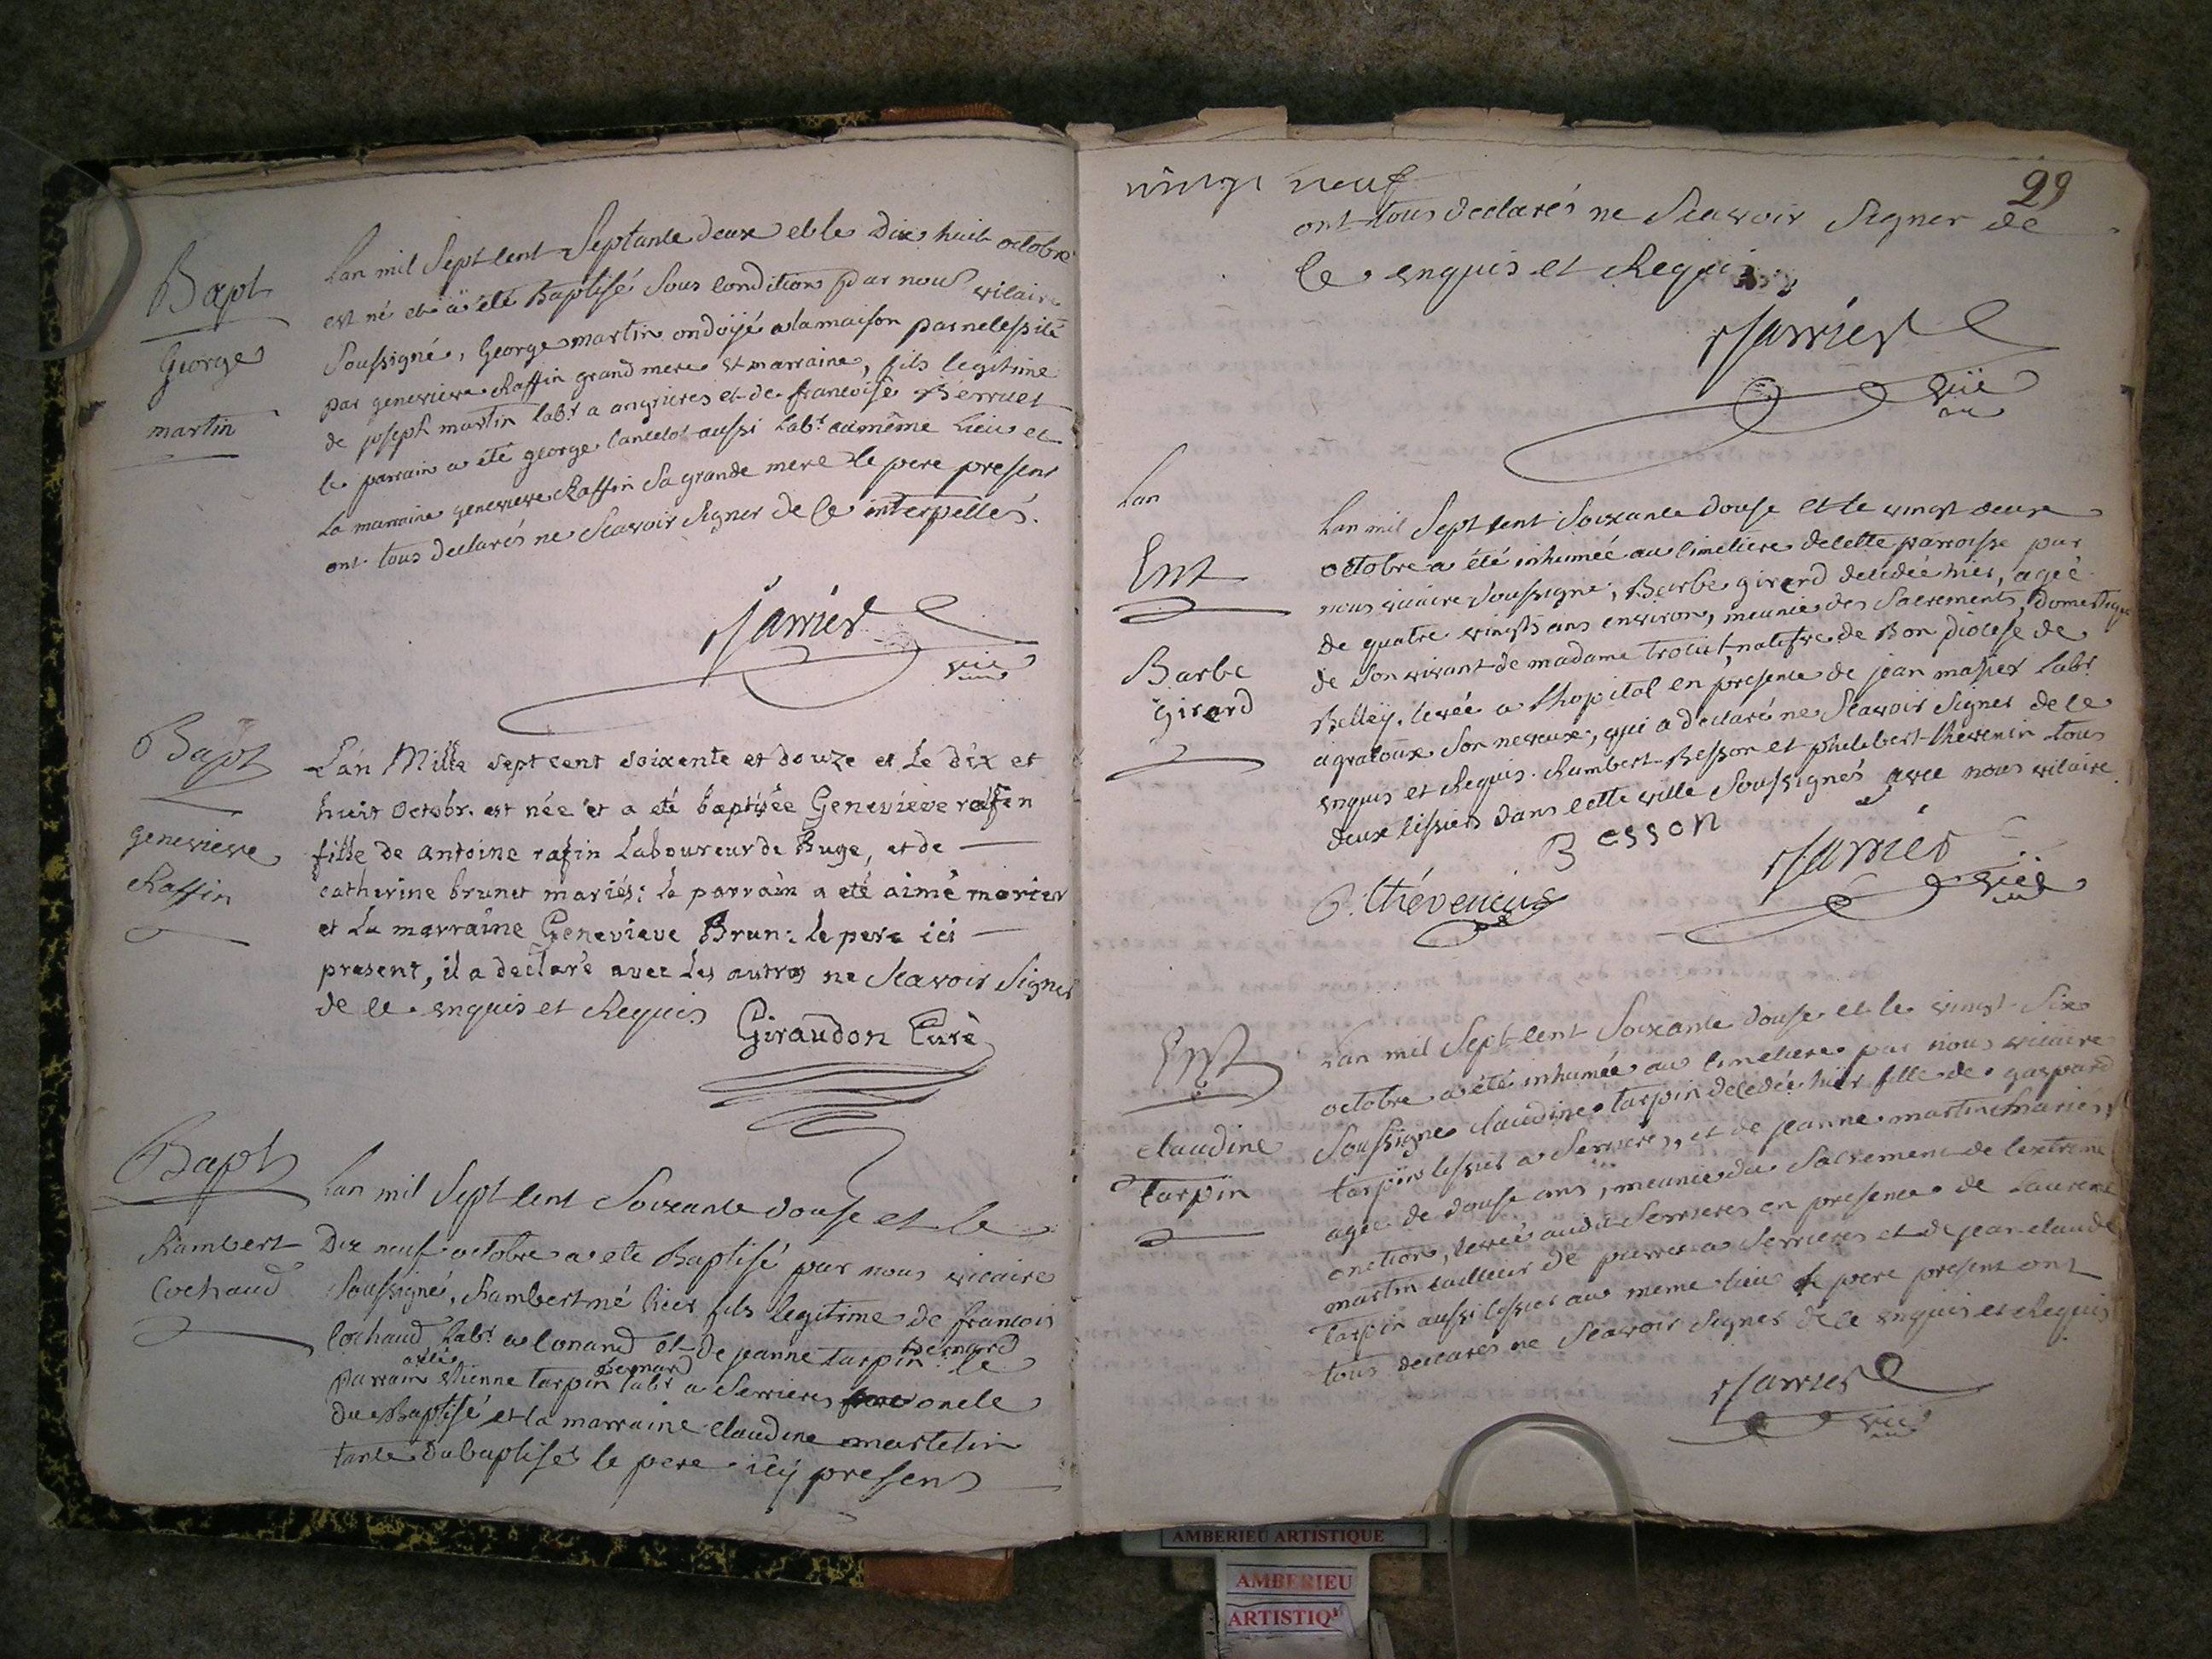 Bapt
George
martin
Lan mil Sept Cent Septante deux et le Dix huit octobre
est né et a été Baptisé Sous Condition par nous vicaire
Soussigné, George martin ondoÿé a la maison par necessité
par genevieve Raffin grand mere et marraine, fils legitime
de joseph martin labr a angrieres et de francoise Berruet
le parrain a été george lancelot aussi Labr au même Lieu et
La marraine genevieve Raffin Sa grande mere le pere present
ont tous declarés ne Scavoir Signer de Ce interpellés.
Sarrier
vic
Bapt
genevieve
Raffin
L'an Mille sept cent soixente et douze et Le dix et
huit octobr. est née et a eté baptisée Genevieve rafin
fille de antoine rafin Laboureur de Buge, et de
catherine brunet mariés: Le parrain a eté aimé morier
et La marraine Genevieve Brun: le pere ici
present, il a declaré avec Les autres ne Scavoir Signer
de Ce enquis et Requis
Giraudon Curé
Bapt
Rambert
Cochaud
Lan mil Sept Cent Soixante douse et le
Dix neuf octobre a eté Baptisé par nous vicaire
Soussigné, Rambert né hier fils legitime de francois
Cochaud Labr a Conand et de jeanne tarpin bernard le
parrain a eté etienne tarpin bernard labr a Serrieres oncle
du Baptisé et la marraine claudine martetin
tante du baptisé le pere icy present
vingt neuf
29
ont tous declarés ne Scavoir Signer de
Ce enquis et Requis
Sarrier
vic
Lan
Ent
Barbe
Girard
Lan mil Sept Cent Soixante douse et le vingt deux
octobre a été inhumée au Cimetiere de Cette parroisse par
nous vicaire Soussigné, Barbe girard decedée hier, agée
de quatre vingts ans environ, meunie des Sacrements, domestique
de Son vivant de madame trocut, native de Bon diocese de
Belleÿ, levée a lhopital en presence de jean masier Labr
a gratoux Son neveux, qui a declaré ne Scavoir Signer de Ce
enquis et Requis. Rambert Besson et philibert thevenin tous
deux tissiers dans Cette ville Soussignés avec nous vicaire
Besson
P. thévenin
Sarrier
vic
Ent
claudine
tarpin
Lan mil Sept Cent Soixante douse et le vingt Six
octobre a été inhumée au Cimetiere par nous vicaire
Soussigné claudine tarpin decedée hier fille de gaspard
tarpin tissier a Serrieres, et de jeanne martin mariés
agée de douse ans, meunie du Sacrement de Lextreme
onction, levée audit Serrieres en presence de Laurent
martin tailleur de pierre a Serrieres et de jean claude
tarpin aussi tissier au meme lieu le pere present ont
tous declarés ne Scavoir Signer de Ce enquis et Requis
Sarrier
vic
AMBERIEU ARTISTIQUE
AMBERIEU
ARTISTIQ